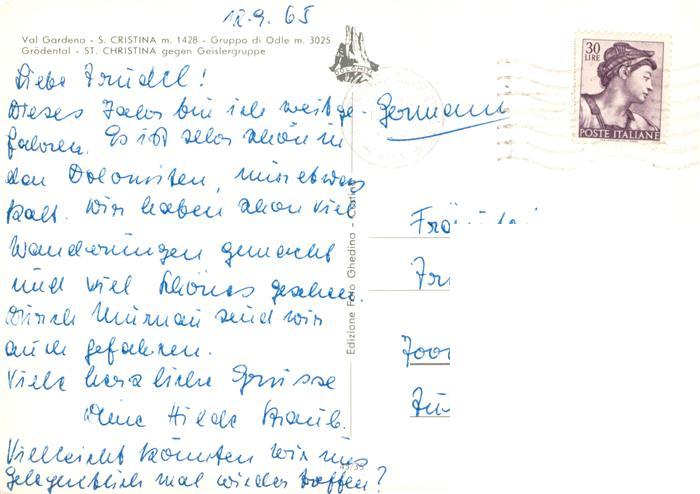 12.9.65
Val Gardena - S. CRISTINA m. 1428 - Gruppo di Odle m. 3025
Grödental - ST. CHRISTINA gegen Geislergruppe
DOLOMITI
30
LIRE
POSTE ITALIANE
Liebe Trudel!
Dieses Jahr bin ich weit ge-
fahren. Es ist sehr schön in
den Dolomiten, nur etwas
kalt. Wir haben schon viel
Wanderungen gemacht
und viel Schönes gesehen.
Durch Murnau sind wir
auch gefahren.
Viele herzliche Grüsse
Deine Hilde Straub.
Vielleicht könnten wir uns
gelegentlich mal wieder treffen?
Edizione Foto Ghedina - Cortina
Germani